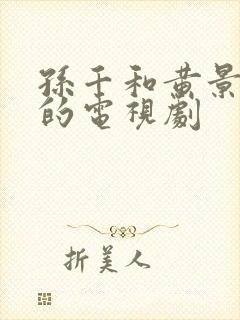 孫千和黃景
的電視劇
折美人